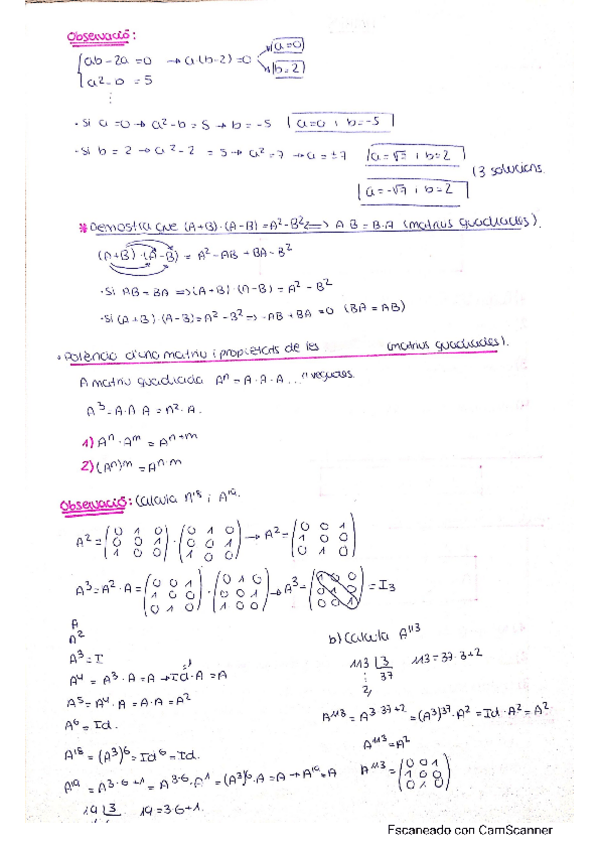 Observació:
ab-2a=0 → a(b-2)=0 a=0
a²-b=5 b=2
⋮
· Si a=0 → a²-b=5 → b=-5 a=0 i b=-5
· Si b=2 → a²-2=5 → a²=7 → a=±7 a=√7 i b=2
(3 solucions.
a=-√7 i b=2
* Demostra que (A+B)·(A-B)=A²-B² <=> AB=B·A (matrius quadrades).
(A+B)·(A-B) = A²-AB+BA-B²
· Si AB=BA => (A+B)·(A-B)=A²-B²
· Si (A+B)·(A-B)=A²-B² => -AB+BA=0 (BA=AB)
· Potència d'una matriu i propietats de les (matrius quadrades).
A matriu quadrada Aⁿ=A·A·A... "n" vegades.
A³=A·A·A=A²·A.
1) Aⁿ·Aᵐ=Aⁿ⁺ᵐ
2) (Aⁿ)m=Aⁿ·m
Observació: Calcula A¹⁸ i A¹⁹.
A²= (0 1 0 / 0 0 1 / 1 0 0) · (0 1 0 / 0 0 1 / 1 0 0) → A²= (0 0 1 / 1 0 0 / 0 1 0)
A³=A²·A= (0 0 1 / 1 0 0 / 0 1 0) · (0 1 0 / 0 0 1 / 1 0 0) → A³= (1 0 0 / 0 1 0 / 0 0 1) =I₃
A
A²
A³=I
A⁴=A³·A=A → Id·A=A
A⁵=A⁴·A=A·A=A²
A⁶=Id.
A¹⁸=(A³)⁶=Id⁶=Id.
A¹⁹=A³·⁶⁺¹=A³·⁶·A¹=(A³)⁶·A=A → A¹⁹=A
19 |3 19=3·6+1.
b) Calcula A¹¹³
113 |3 113=37·3+2
37
2
A¹¹³=A³·³⁷⁺²=(A³)³⁷·A²=Id·A²=A²
A¹¹³=A²
A¹¹³= (0 0 1 / 1 0 0 / 0 1 0)
Escaneado con CamScanner